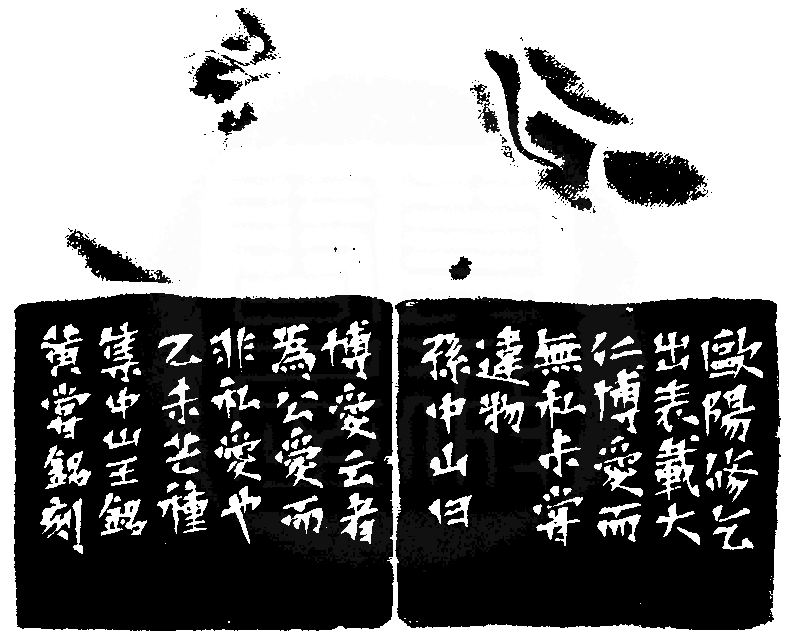 歐陽修乞
出表載大
仁博愛而
無私未嘗
違物
孫中山曰
博愛云者
為公愛而
非私愛也
乙未芒種
集中山王銘
黃嘗銘刻